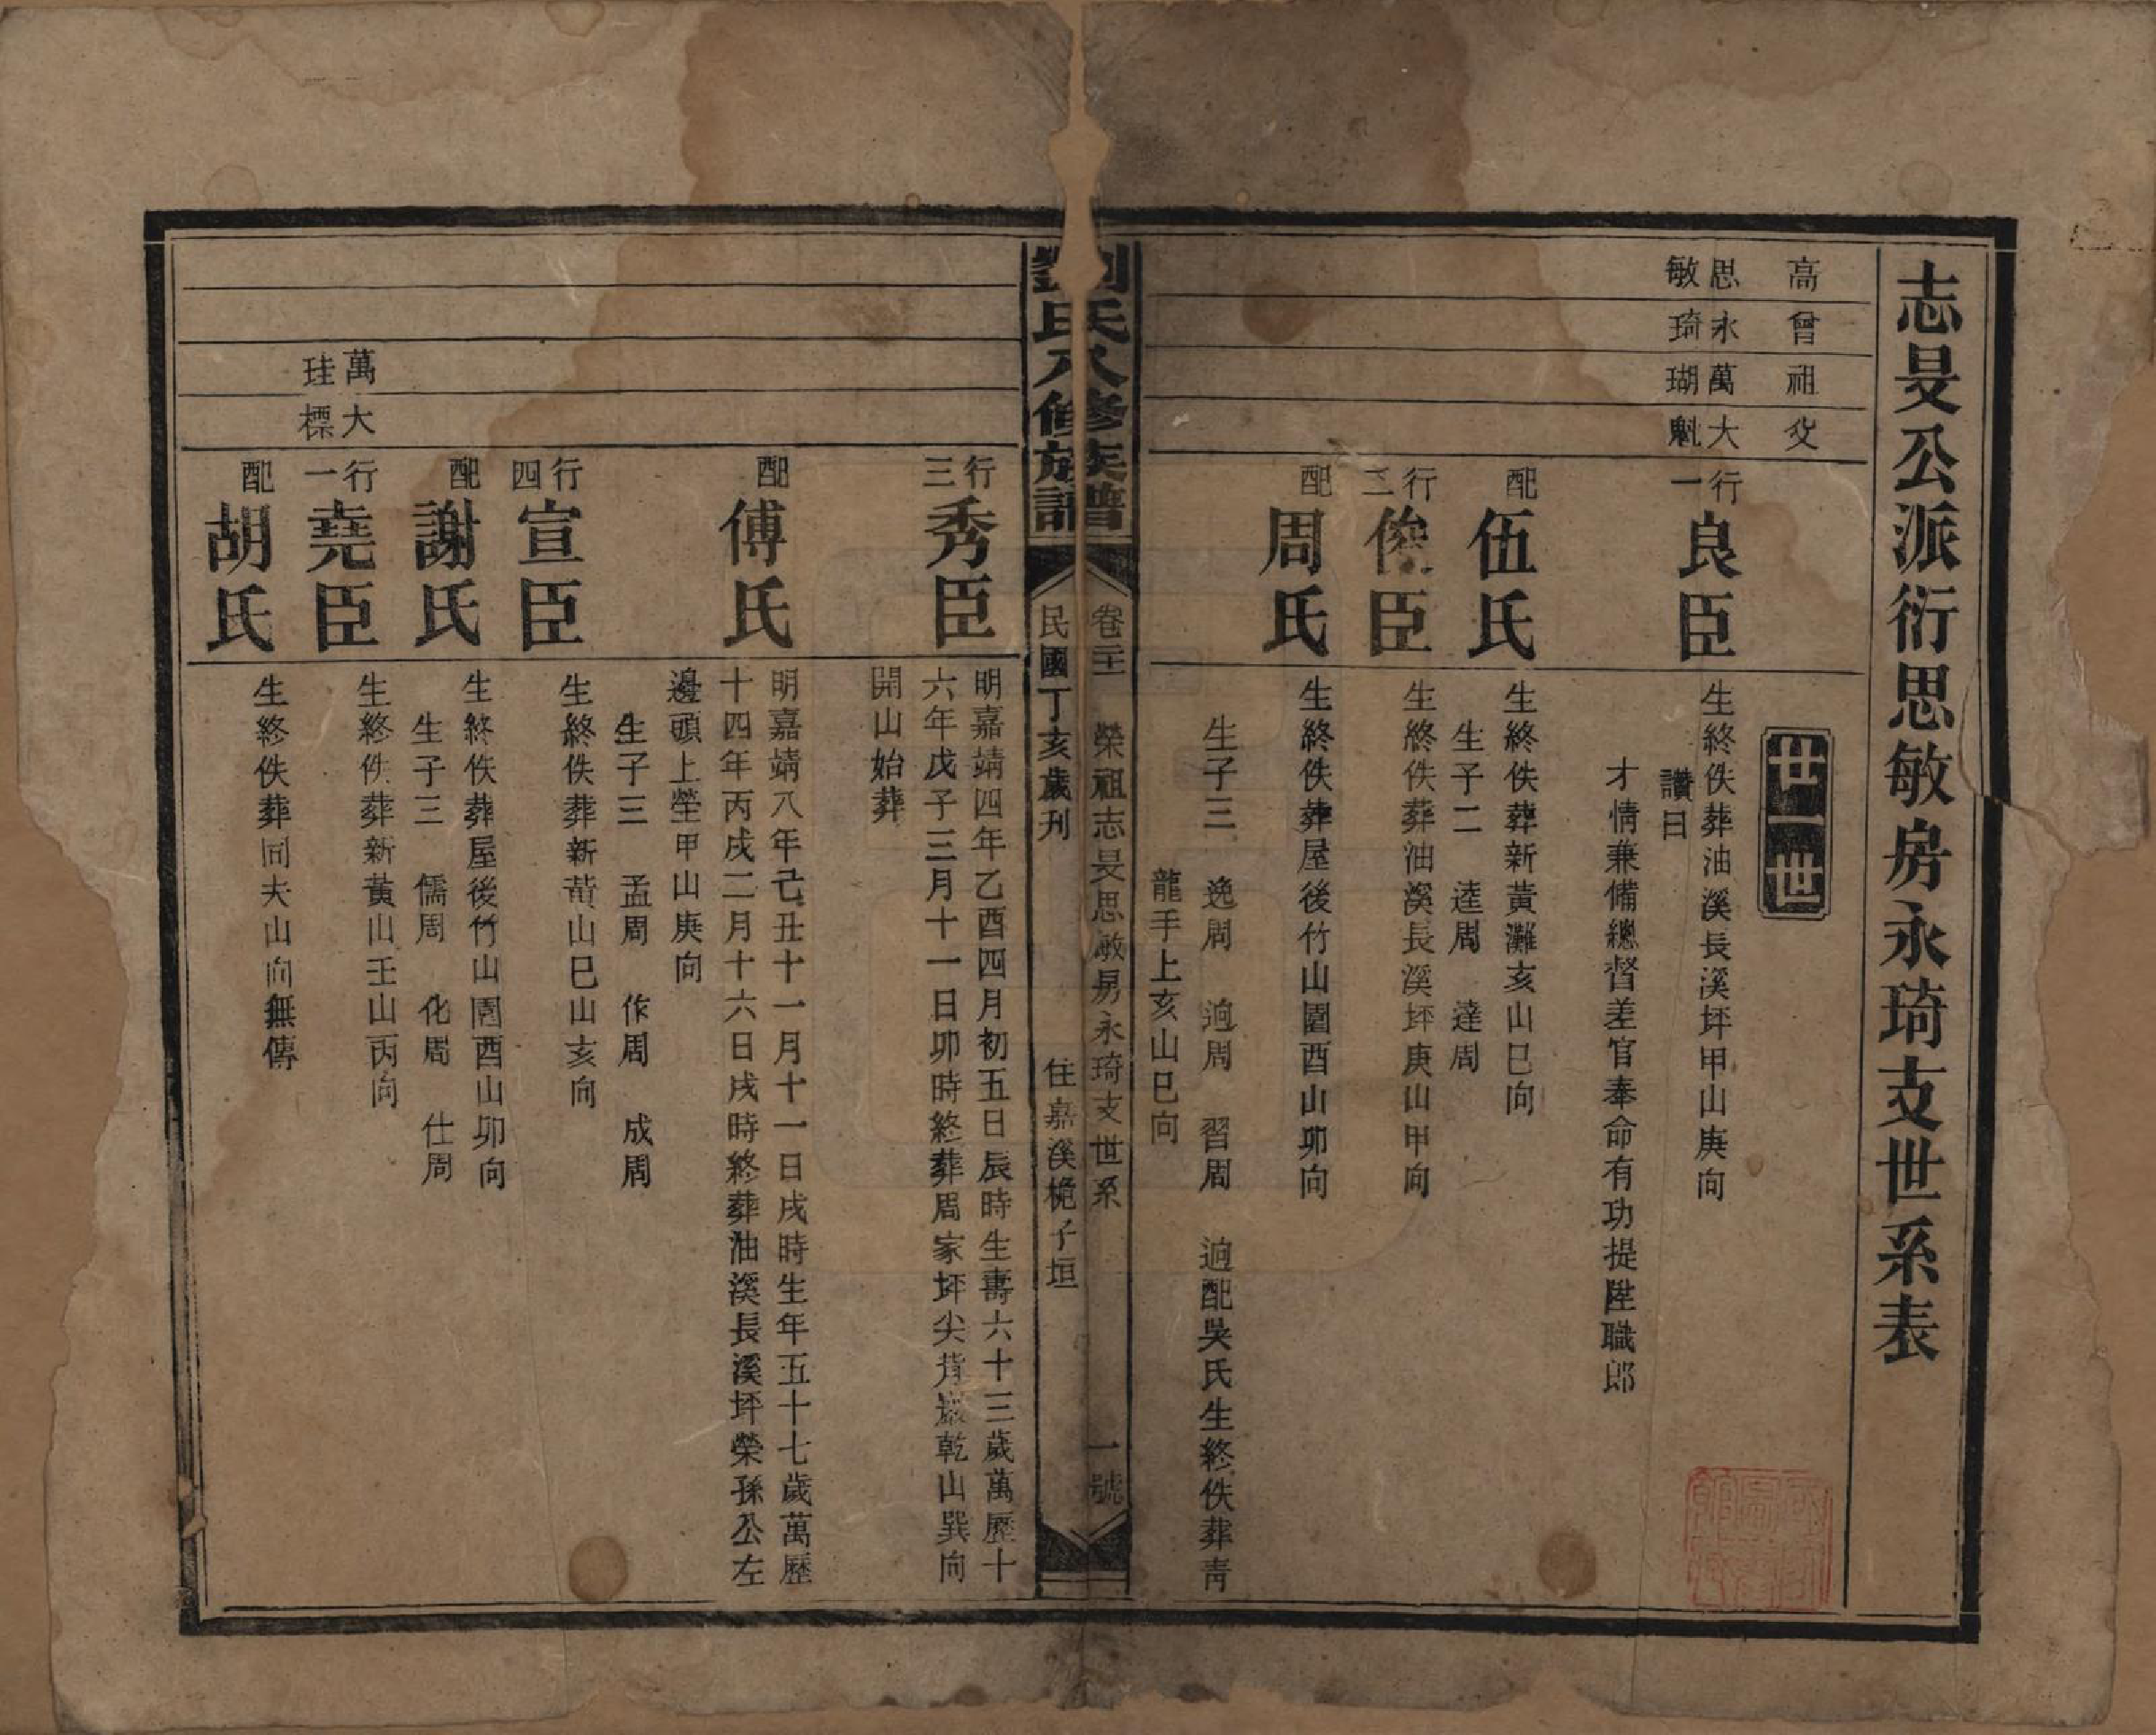 志旻公派衍思敏房永琦支世系表
高 曾 祖 父
廿一世
思敏 永琦 萬瑚 大魁
行一 良臣
生終佚葬油溪長溪坪甲山庚向
讚曰
才情兼備總督差官奉命有功提陞職郎
配 伍氏
生終佚葬新黃灘亥山巳向
生子二 逵周 達周
行二 俊臣
生終佚葬油溪長溪坪庚山甲向
配 周氏
生終佚葬屋後竹山園酉山卯向
生子三 逸周 迥周 習周 迥配吳氏生終佚葬靑
龍手上亥山巳向
劉氏八修族譜
卷二十一 榮祖志旻思敏房永琦支世系 一號
民國丁亥歲刊 住嘉溪桅子垣
行三 秀臣
明嘉靖四年乙酉四月初五日辰時生壽六十三歲萬歷十
六年戊子三月十一日卯時終葬周家坪尖背巖乾山巽向
開山始葬
配 傅氏
明嘉靖八年己丑十一月十一日戌時生年五十七歲萬歷
十四年丙戌二月十六日戌時終葬油溪長溪坪榮孫公左
邊頭上塋甲山庚向
生子三 孟周 作周 成周
行四 宣臣
生終佚葬新黃山巳山亥向
配 謝氏
生終佚葬屋後竹山園酉山卯向
生子三 儒周 化周 仕周
萬珪 大標
行一 堯臣
生終佚葬新黃山壬山丙向
配 胡氏
生終佚葬同夫山向無傳